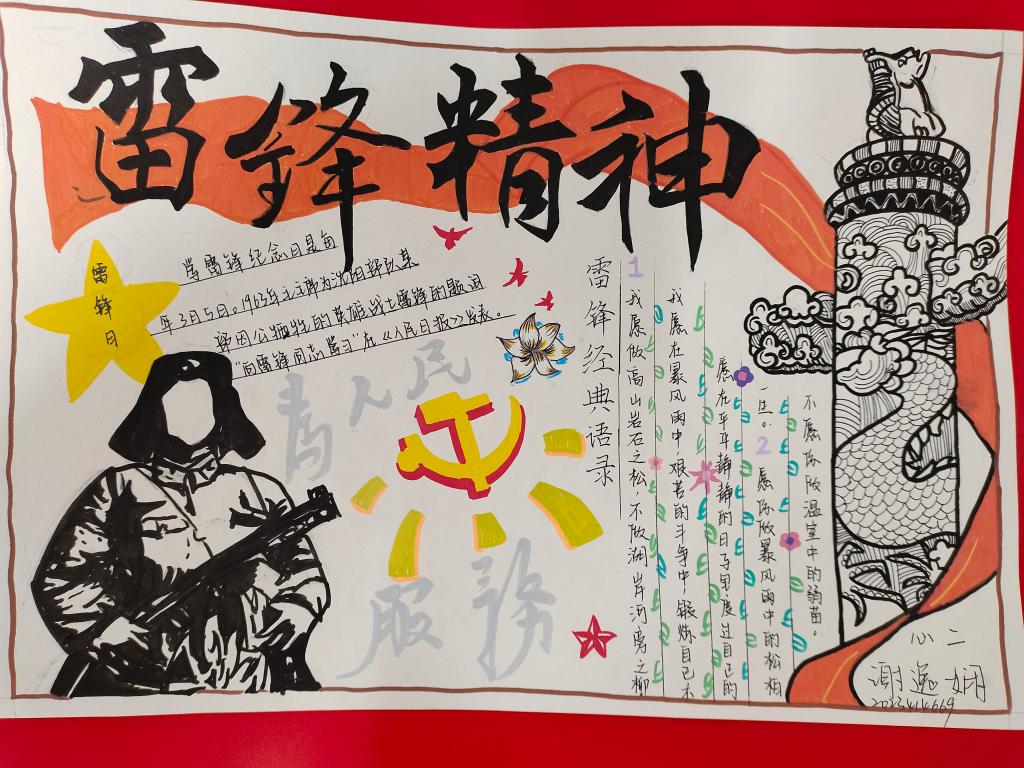 雷锋精神
雷锋日
学雷锋纪念日是每
年3月5日。1963年毛主席为沈阳部队某
部因公牺牲的英雄战士雷锋的题词
"向雷锋同志学习"在《人民日报》发表。
為人民
服務
雷锋经典语录
1
我愿做高山岩石之松,不做湖岸河旁之柳
我愿在暴风雨中,艰苦的斗争中,锻炼自己不
愿在平平静静的日子里度过自己的
一生。2 愿你做暴风雨中的松柏
不愿你做温室中的弱苗。
心二
谢逸娴